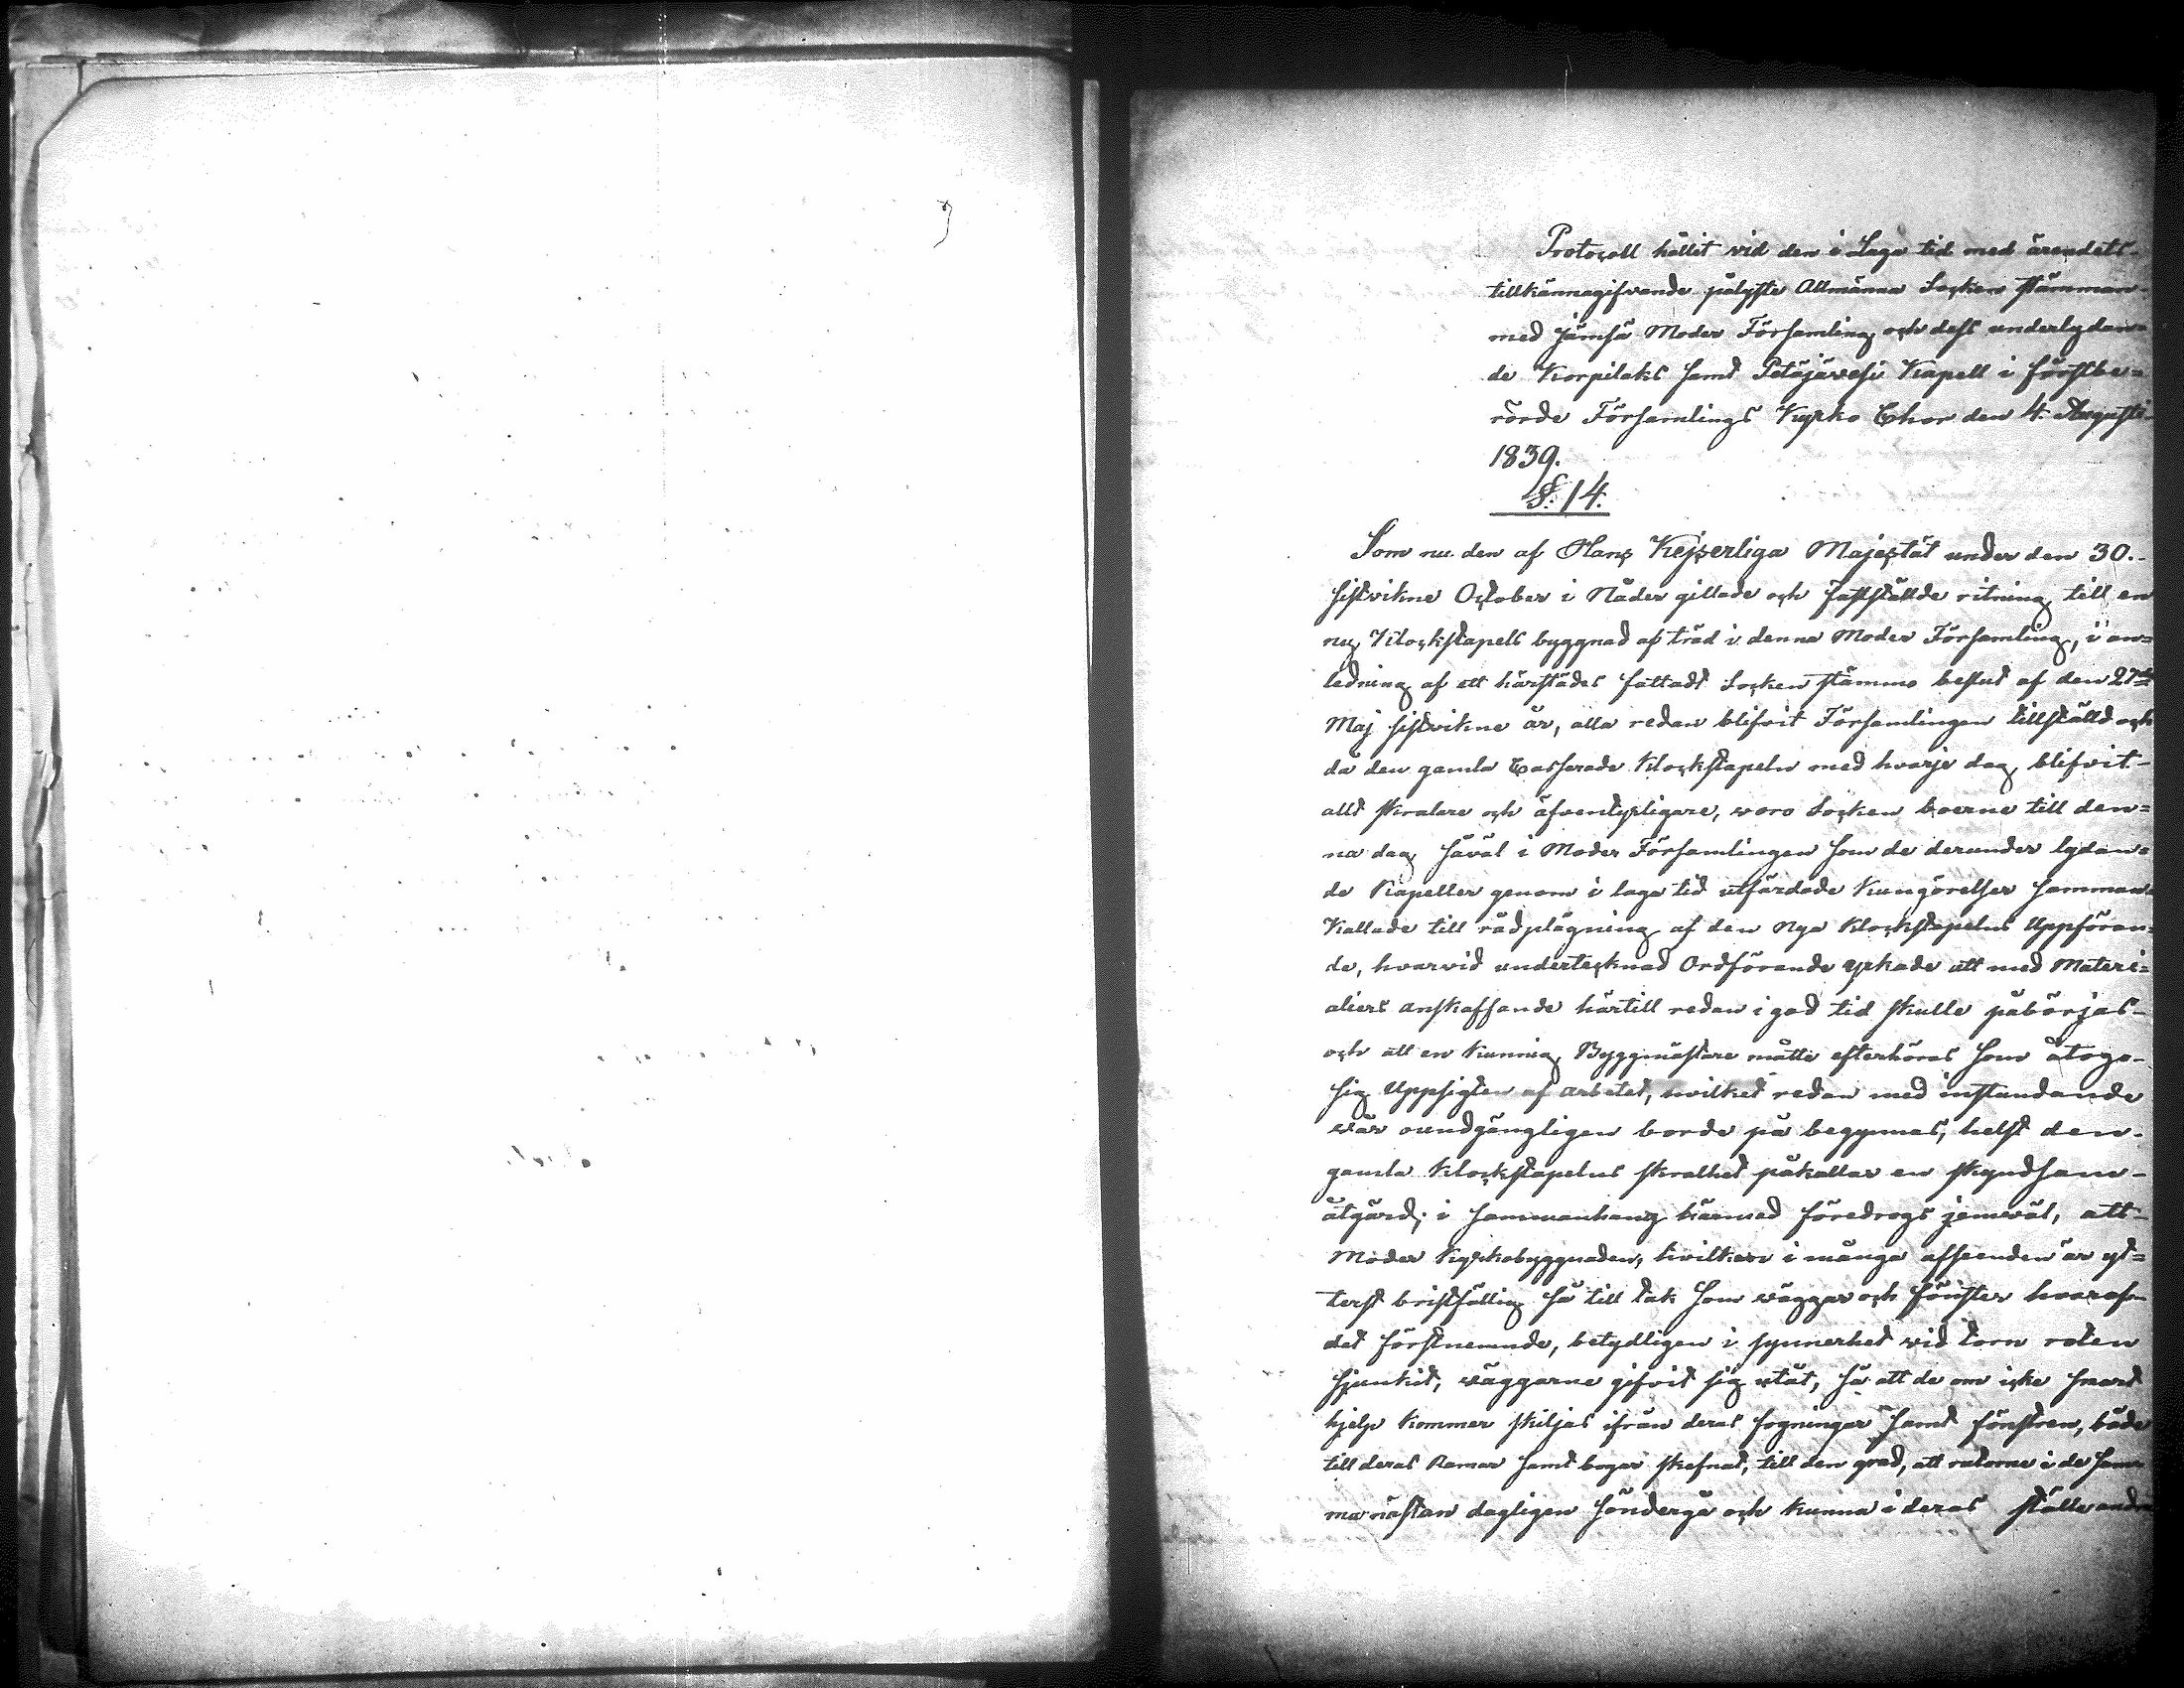 Protocoll hållit vid den i Laga tid med ärendets
tillkännagifvande pålyste Allmänna Socken stämman
med Jämsä Moder Församling och dess underlydan-
de Korpilaks samt Petäjävesi Kapell i först be-
rörde Församlings Kyrko Chor den 4. Augusti
1839.
§. 14.
Som nu den af Hans Kejserliga Majestät under den 30.
sistvikne October i Nåder gillade och fastställde ritning till en
ny Klockstapels byggnad af träd i denna Moder Församling, i an=
ledning af ett härstädes fattadt Socken stämmo beslut af den 27de
Maj sistvikne år, alla redan blifvit Församlingen tillställd och
då den gamla Casserade Klockstapeln med hvarje dag blifvit
allt skralare och äfventyrligare, woro Socken boerne till den=
na dag såväl i Moder Församlingen som de derunder lydan=
de Kapeller genom i laga tid utfärdade Kungörelser samman
Kallade till rådplägning af den Nya Klockstapelns Uppföran=
de, hvarvid undertecknad Ordförande yrkade att med Materi=
aliers anskaffande härtill redan i god tid skulle påbörjas
och att en Kunnig Byggmästare måtte efterhöras som åtoge
sig Uppsigten af arbetet, hvilket redan med instundande
vår oundgängligen borde på begynnas, helst den
gamla Klockstapelns skralhet påkallar en skyndsam
åtgärd; i sammanhang härmed föredrogs jemväl, att
Moder Kyrkobyggnaden, hvilken i många afseenden är yt=
terst bristfällig så till tak som väggar och fönster hvaraf
det förstnemnde, betydligen i synnerhet vid torn roten
sjunkit, väggarne gifvit sig utåt, så att de om icke snart
hjelp Kommer skiljas ifrån deras fogningar samt fönstren, både
till deras Ramar samt bogar skefnat, till den grad, att rutorne i de sam
ma nästan dagligen söndergå och kunna i deras ställe andra